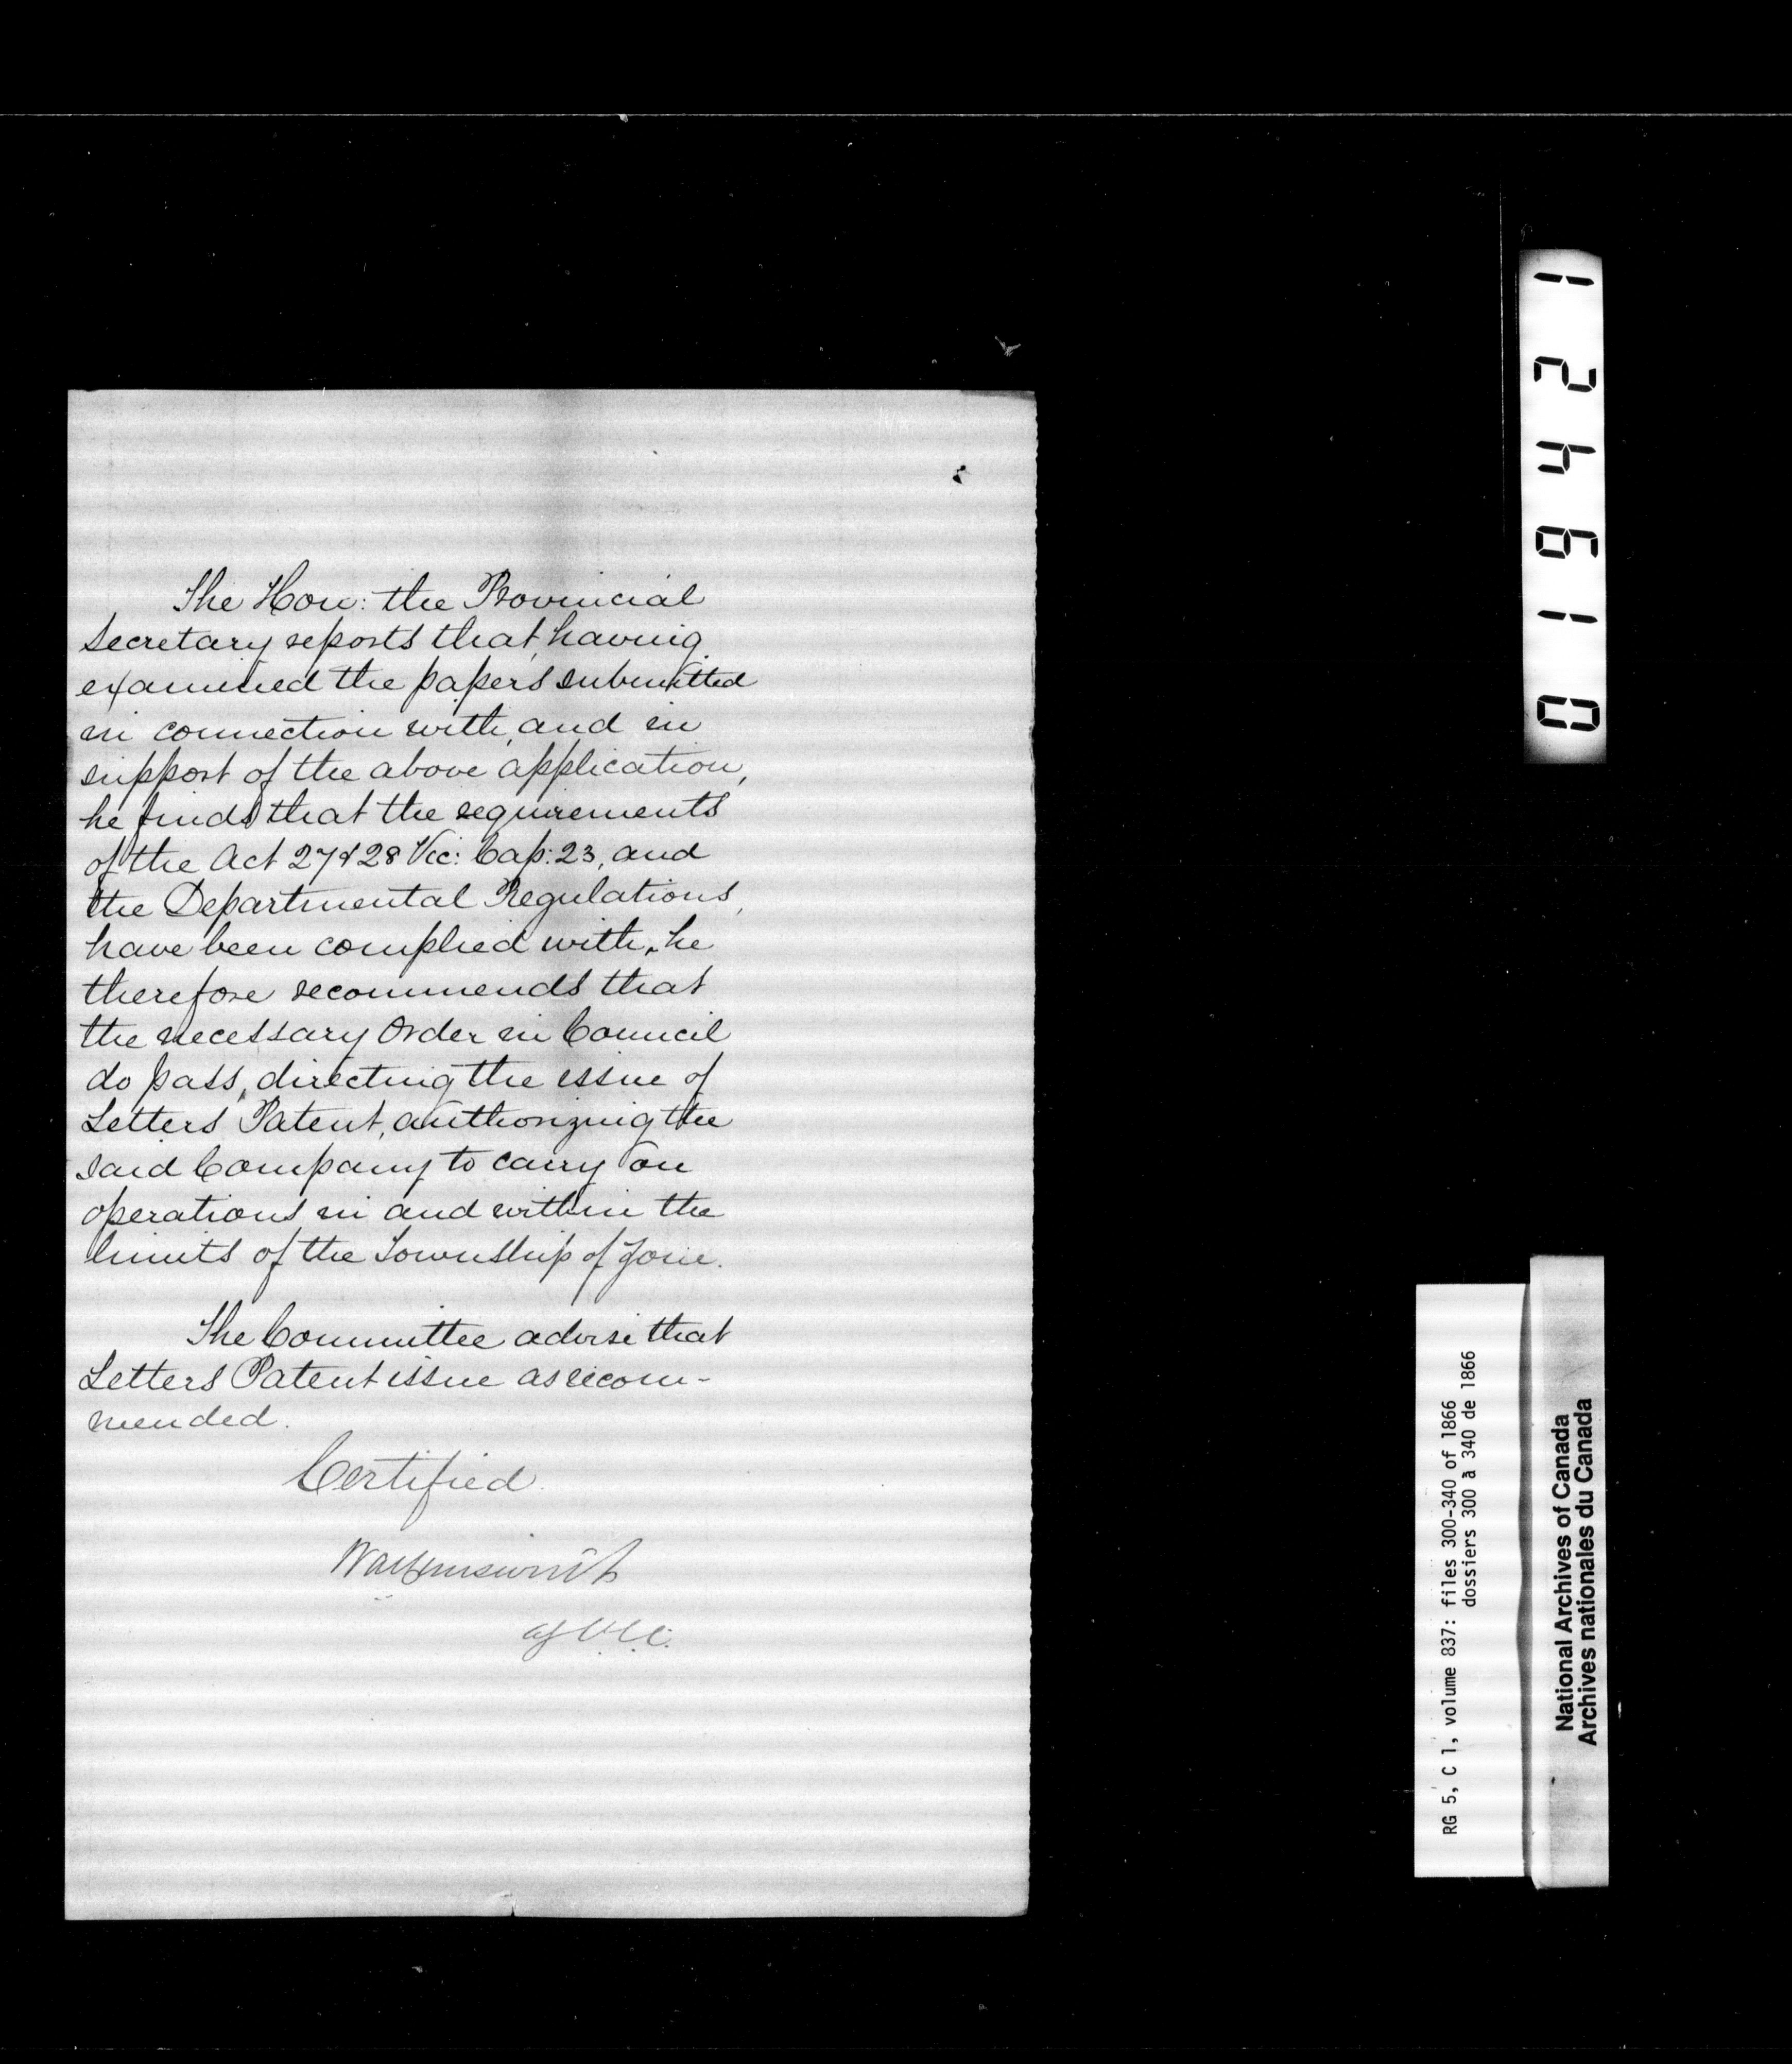 The Hon: the Provincial
Secretary reports that, having
examined the papers submitted
in connection with, and in
support of the above application,
he finds that the requirements
of the Act 27 & 28 Vic: Cap: 23, and
the Departmental Regulations,
have been complied with, he
therefore recommends that
the necessary Order in Council
do pass, directing the issue of
Letters Patent, authorizing the
said Company to carry on
operations in and within the
limits of the Township of Zone.
The Committee advise that
Letters Patent issue as recom-
mended.
Certified.
016421
RG 5, C 1, volume 837: files 300-340 of 1866
dossiers 300 à 340 de 1866
National Archives of Canada
Archives nationales du Canada